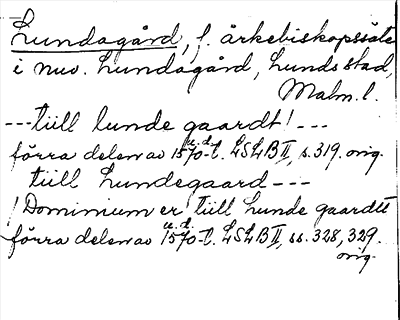 Lundagård, f. ärkebiskopssäte
i nuv. Lundagård, Lunds stad,
Malm. l.
--- tiill lunde gaardt! ---
u. d.
förra delen av 1570-t. LSLB II, s. 319. orig.
tiill Lundegaard ---
! Dominium er tiill Lunde gaardtt
u. d.
förra delen av 1570-t. LSLB II, ss. 328, 329.
orig.